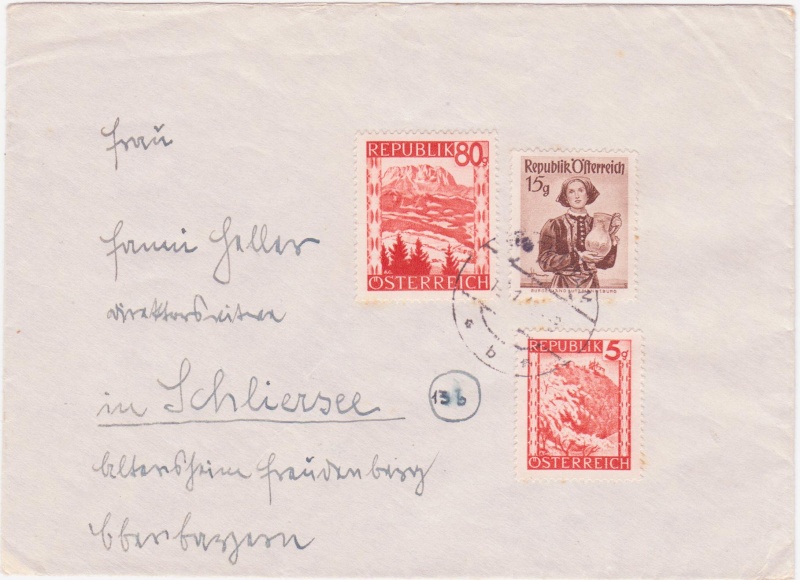 Frau
Fanni Heller
Direktorswitwe
in Schliersee
13b
Altersheim Freudenberg
Oberbayern
REPUBLIK 80g
ÖSTERREICH
Republik Österreich
15g
REPUBLIK 5g
ÖSTERREICH
b